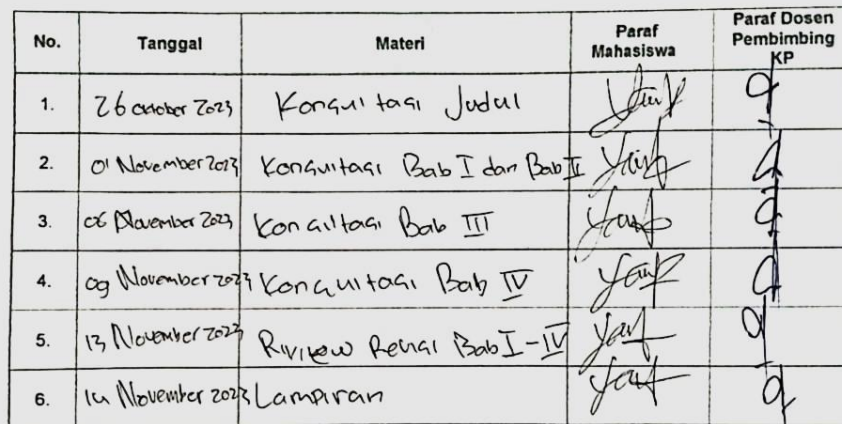 No. Tanggal Materi Paraf Mahasiswa Paraf Dosen Pembimbing KP
1. 26 Oktober 2023 Konsultasi Judul
2. 01 November 2023 Konsultasi Bab I dan Bab II
3. 06 November 2023 Konsultasi Bab III
4. 09 November 2023 Konsultasi Bab IV
5. 13 November 2023 Riview Revisi Bab I - IV
6. 14 November 2023 Lampiran